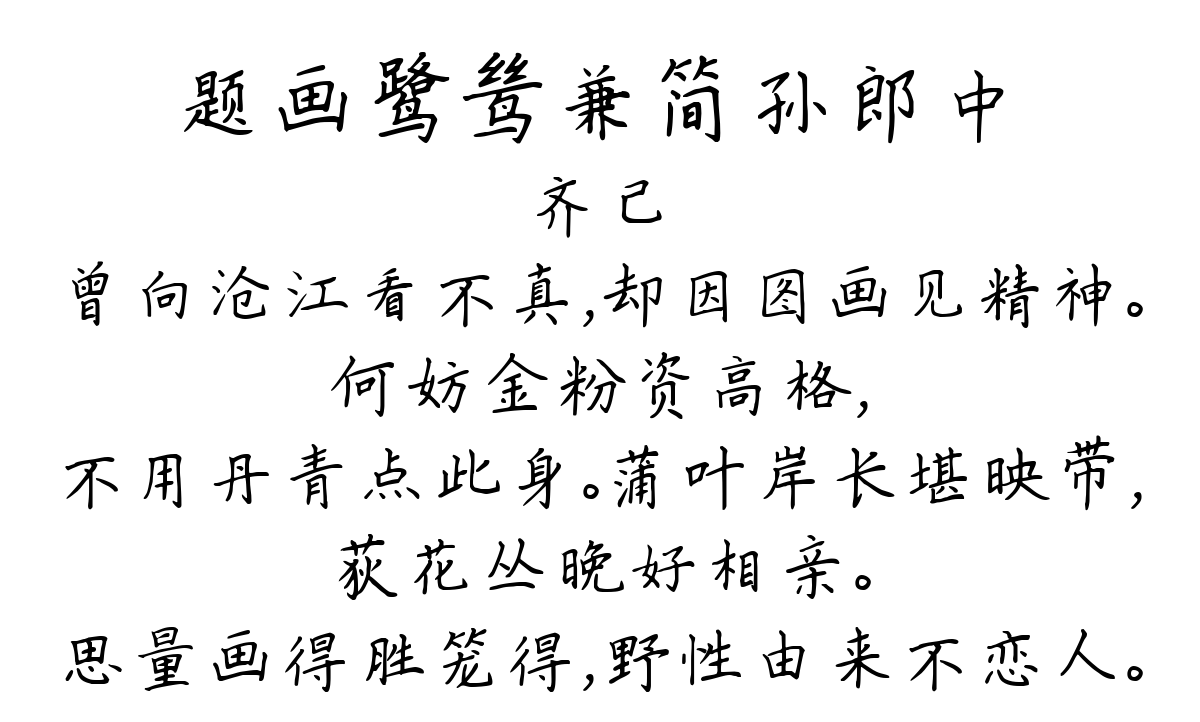 题画鹭鸶兼简孙郎中
齐己
曾向沧江看不真,却因图画见精神。
何妨金粉资高格,
不用丹青点此身。蒲叶岸长堪映带,
荻花丛晚好相亲。
思量画得胜笼得,野性由来不恋人。